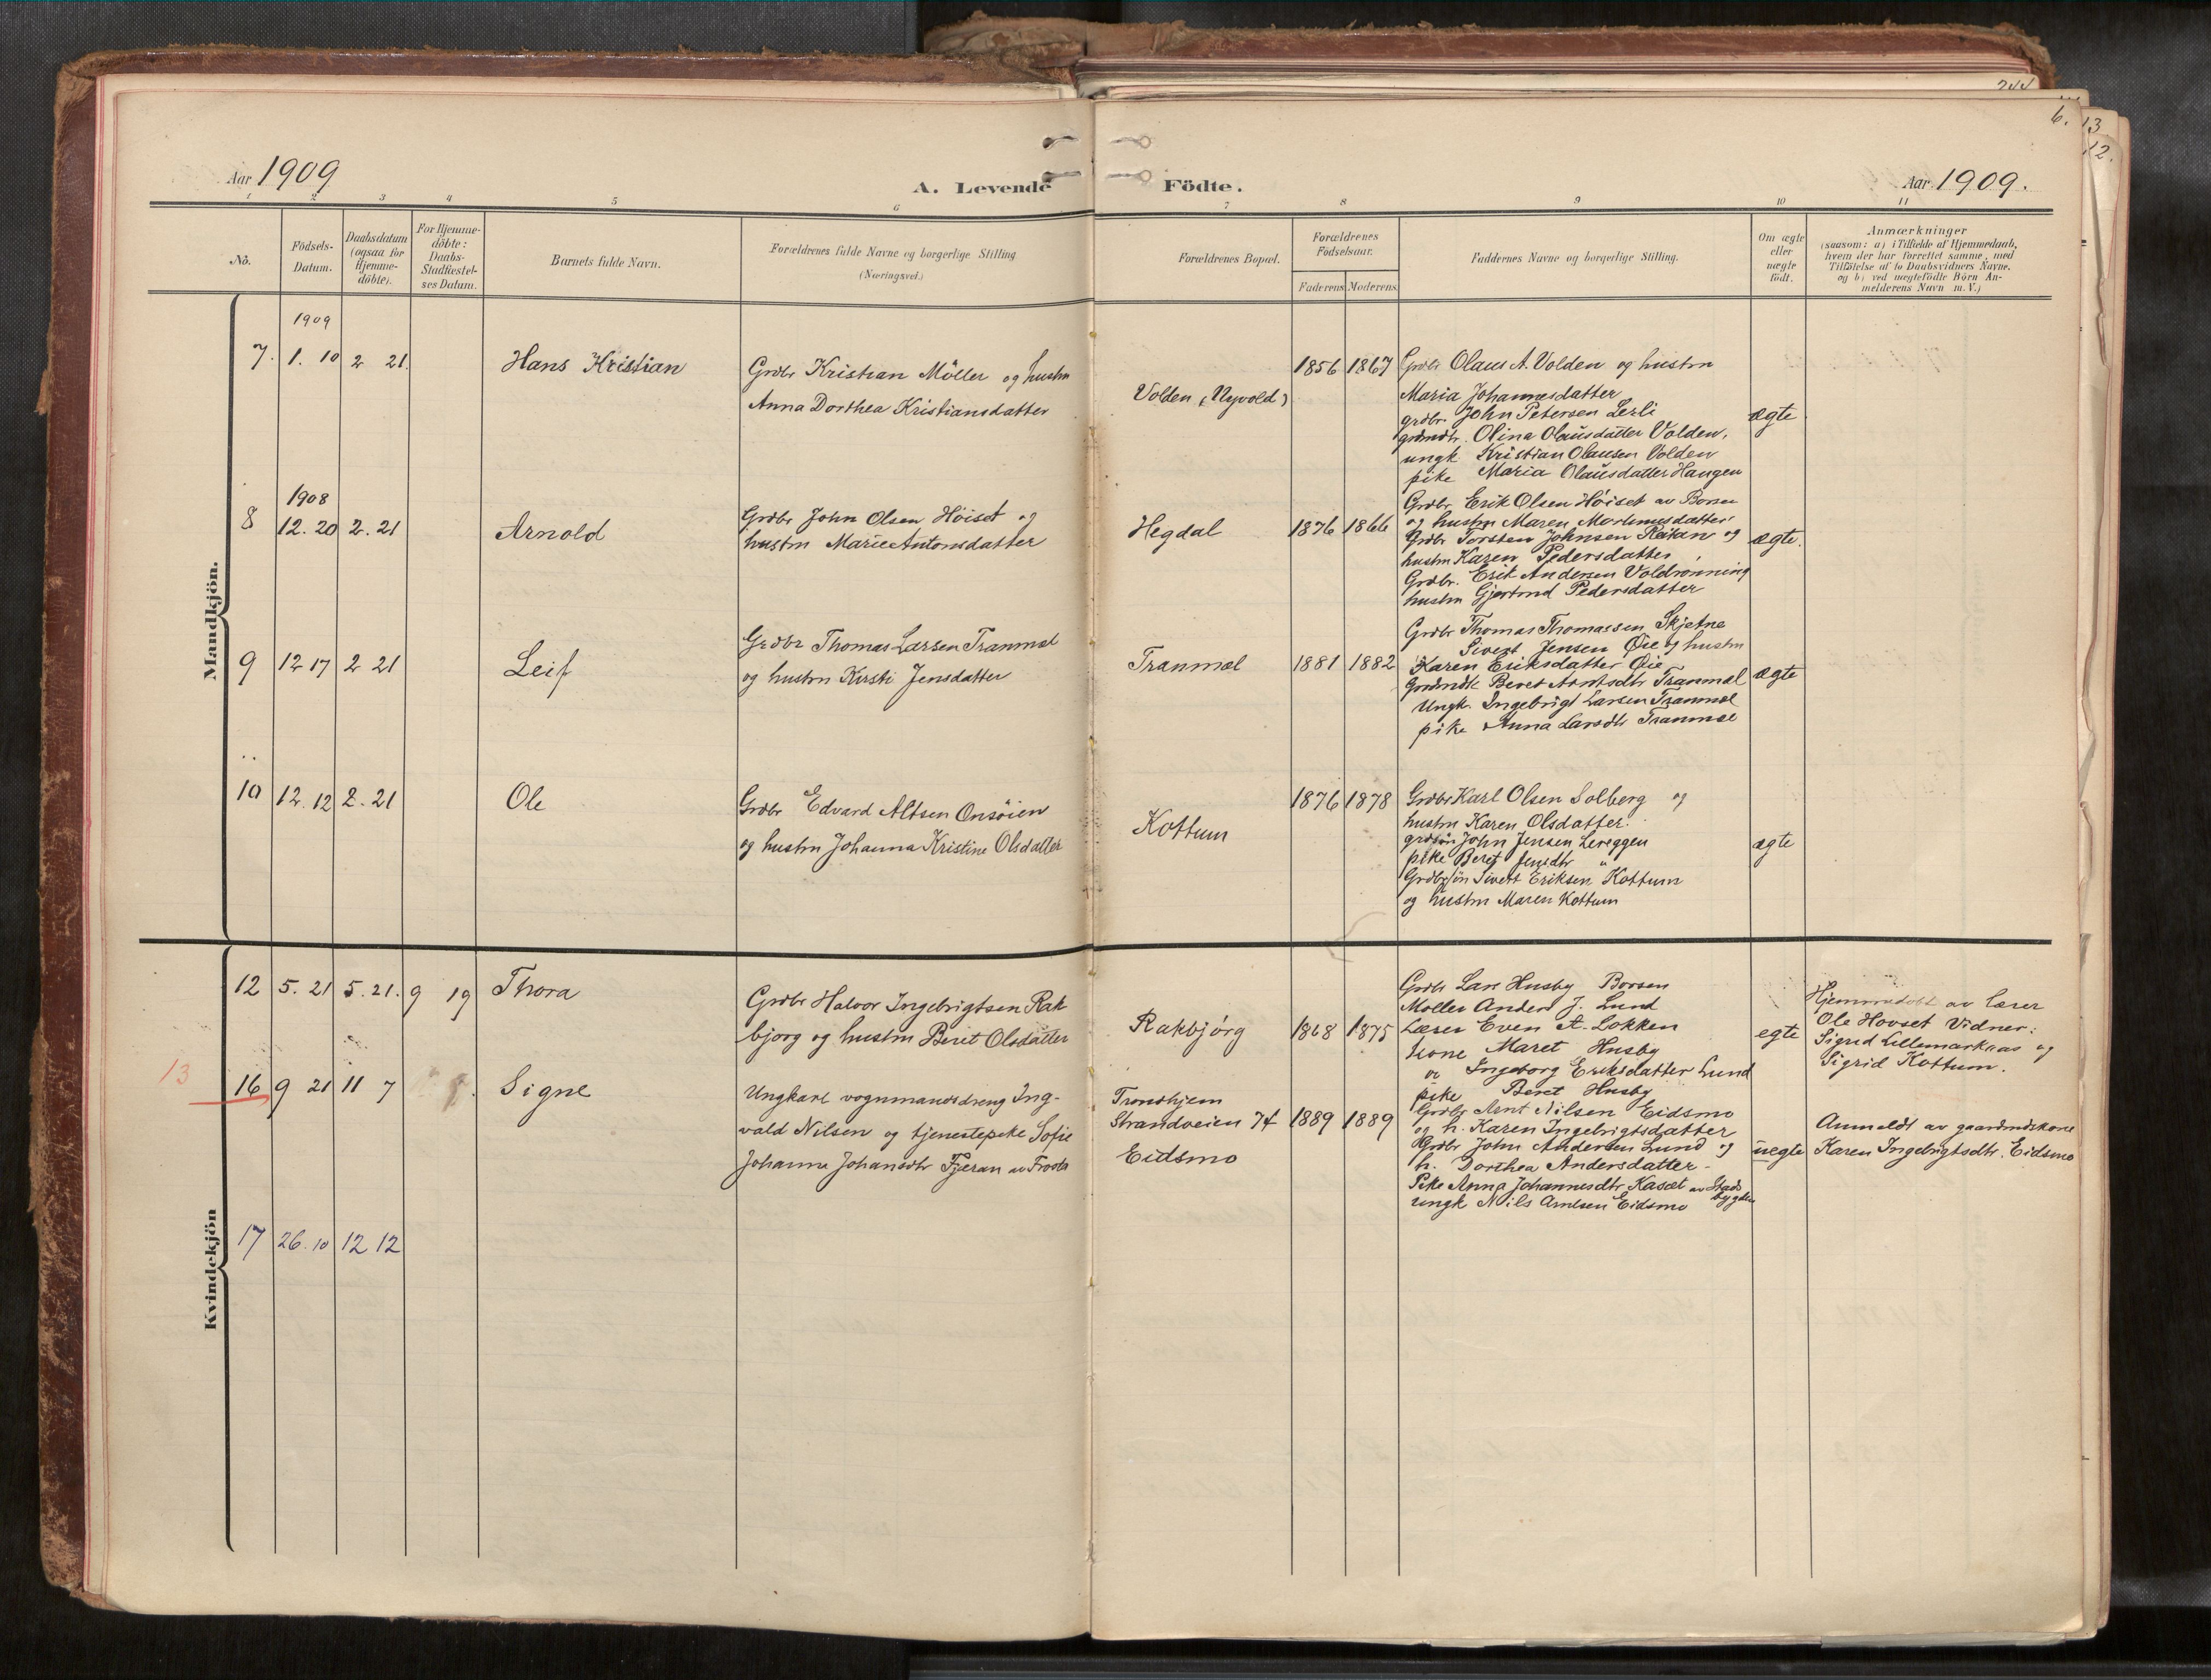 244
6.
13
12.
Aar 1909
A. Levende Födte.
Aar 1909.
1 2 3 4 5 6 7 8 9 10 11
No.
Födsels-
Datum.
Daabsdatum
(ogsaa for
Hjemme-
döbte).
For Hjemme-
döbte:
Daabs-
Stadfæstel-
ses Datum.
Barnets fulde Navn.
Forældrenes fulde Navne og borgerlige Stilling
(Næringsvei.)
Forældrenes Bopæl.
Forældrenes
Födselsaar.
Faderens
Moderens
Faddernes Navne og borgerlige Stilling.
Om ægte
eller
uægte
födt.
Anmærkninger
(saasom: a) i Tilfælde af Hjemmedaab,
hvem der har forrettet samme, med
Tilföielse af to Daabsvidners Navne.
og b) ved uægtefödte Börn An-
melderens Navn m. V.)
Mandkjön.
1909
7. 1. 10 2 21.
Hans Kristian
Grdbr Kristian Möller og hustru
Anna Dorthea Kristiansdatter
Volden (Nyvold)
1856 1867
Grdbr Olaus A. Volden og hustru
Maria Johannesdatter
grdbr. John Petersen Lerli
grdmdtr. Olina Olausdatter Volden,
ungk Kristian Olausen Volden
pike Maria Olausdatter Haugen
ægte
1908
8 12. 20 2. 21
Arnold
Grdbr John Olsen Höiset og
hustru Marie Antonsdatter
Hegdal
1876 1866
Grdbr Erik Olsen Höiset av Borsen
og hustru Maren Martinusdatter
Grdbr Torsten Johnsen Raitan og
hustru Karen Pedersdatter,
Grdbr. Erik Andersen Voldrönning
hustru Gjertrud Pedersdatter
ægte.
9 12 17 2 21
Leif
Grdbr Thomas Larsen Tranmæl
og hustru Kirsti Jensdatter
Tranmæl
1881 1882
Grdbr Thomas Thomassen Skjetne
Sivert Jensen Øie og hustru
Karen Eriksdatter Øie
Grdmdk Beret Arntsdtr Tranmæl
Ungk. Ingebrigt Larsen Tranmæl
pike Anna Larsdtr Tranmæl
ægte
10 12. 12 2. 21
Ole
Grdbr Edvard Altsen Onsöien
og hustru Johanna Kristine Olsdatter
Kottum
1876 1878
Grdbr Karl Olsen Solberg og
hustru Karen Olsdatter.
grdsön John Jensen Lereggen
pike Beret Jensdtr "
Grdbrsön Sivert Eriksen Kottum
og hustru Maren Kottum
ægte
Kvindekjön
12 5. 21 5. 21. 9 19
Thora
Grdbr Halvor Ingebrigtsen Rak
bjørg og hustru Beret Olsdatter
Rakbjórg
1868 1875
Grdbr Lars Husby Borsen
Møller Anders J. Lund
Lærer Even A. Løkken
kone Maret Husby
" Ingeborg Eriksdatter Lund
pike Beret Husby
egte
Hjemmedøbt av lærer
Ole Hovset Vidner:
Sigrid Lillemarkaas og
Sigrid Kottum.
13
16 9 21 11 7
Signe
Ungkarl vognmandsdreng Ing-
vald Nilsen og tjenestepike Sofie
Johanna Johansdtr Fjeran av Frosta
Tronhjem
Strandveien 74
Eidsmo
1889 1889
Grdbr Arnt Nilsen Eidsmo
og h. Karen Ingebrigtsdatter
Grdbr John Andersen Lund og
h. Dorthea Andersdatter
Pike Anna Johannesdtr Kasæt av Stads
bygden
ungk Nils Arntsen Eidsmo
uegte
Anmeldt av gaardmdskone
Karen Ingebrigtsdtr. Eidsmo
17 26. 10 12 12